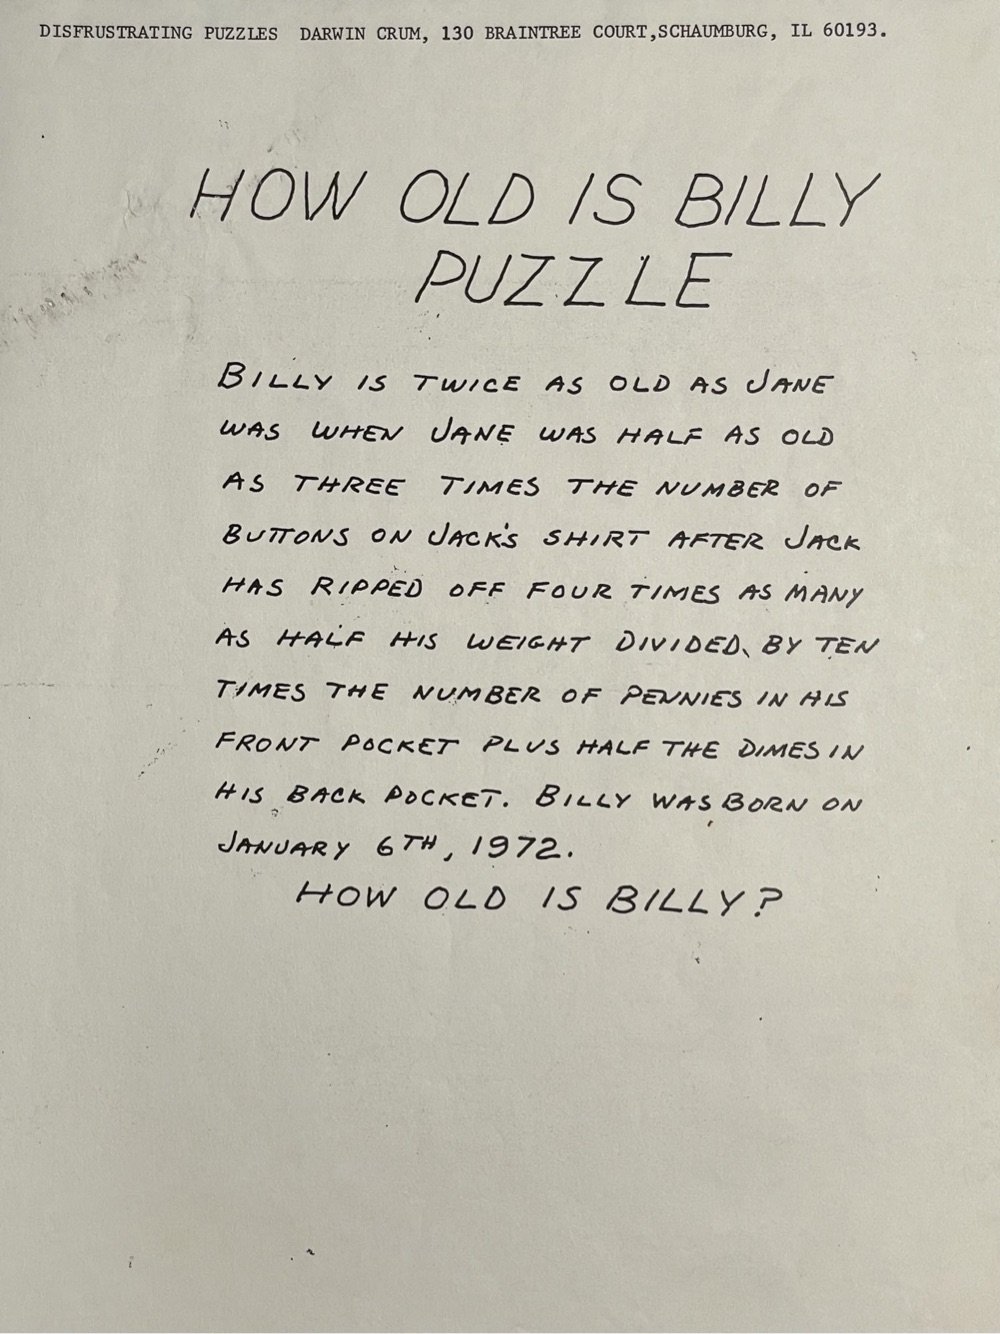 DISFRUSTRATING PUZZLES DARWIN CRUM, 130 BRAINTREE COURT,SCHAUMBURG, IL 60193.
HOW OLD IS BILLY
PUZZLE
BILLY IS TWICE AS OLD AS JANE
WAS WHEN JANE WAS HALF AS OLD
AS THREE TIMES THE NUMBER OF
BUTTONS ON JACK'S SHIRT AFTER JACK
HAS RIPPED OFF FOUR TIMES AS MANY
AS HALF HIS WEIGHT DIVIDED BY TEN
TIMES THE NUMBER OF PENNIES IN HIS
FRONT POCKET PLUS HALF THE DIMES IN
HIS BACK POCKET. BILLY WAS BORN ON
JANUARY 6TH, 1972.
HOW OLD IS BILLY?